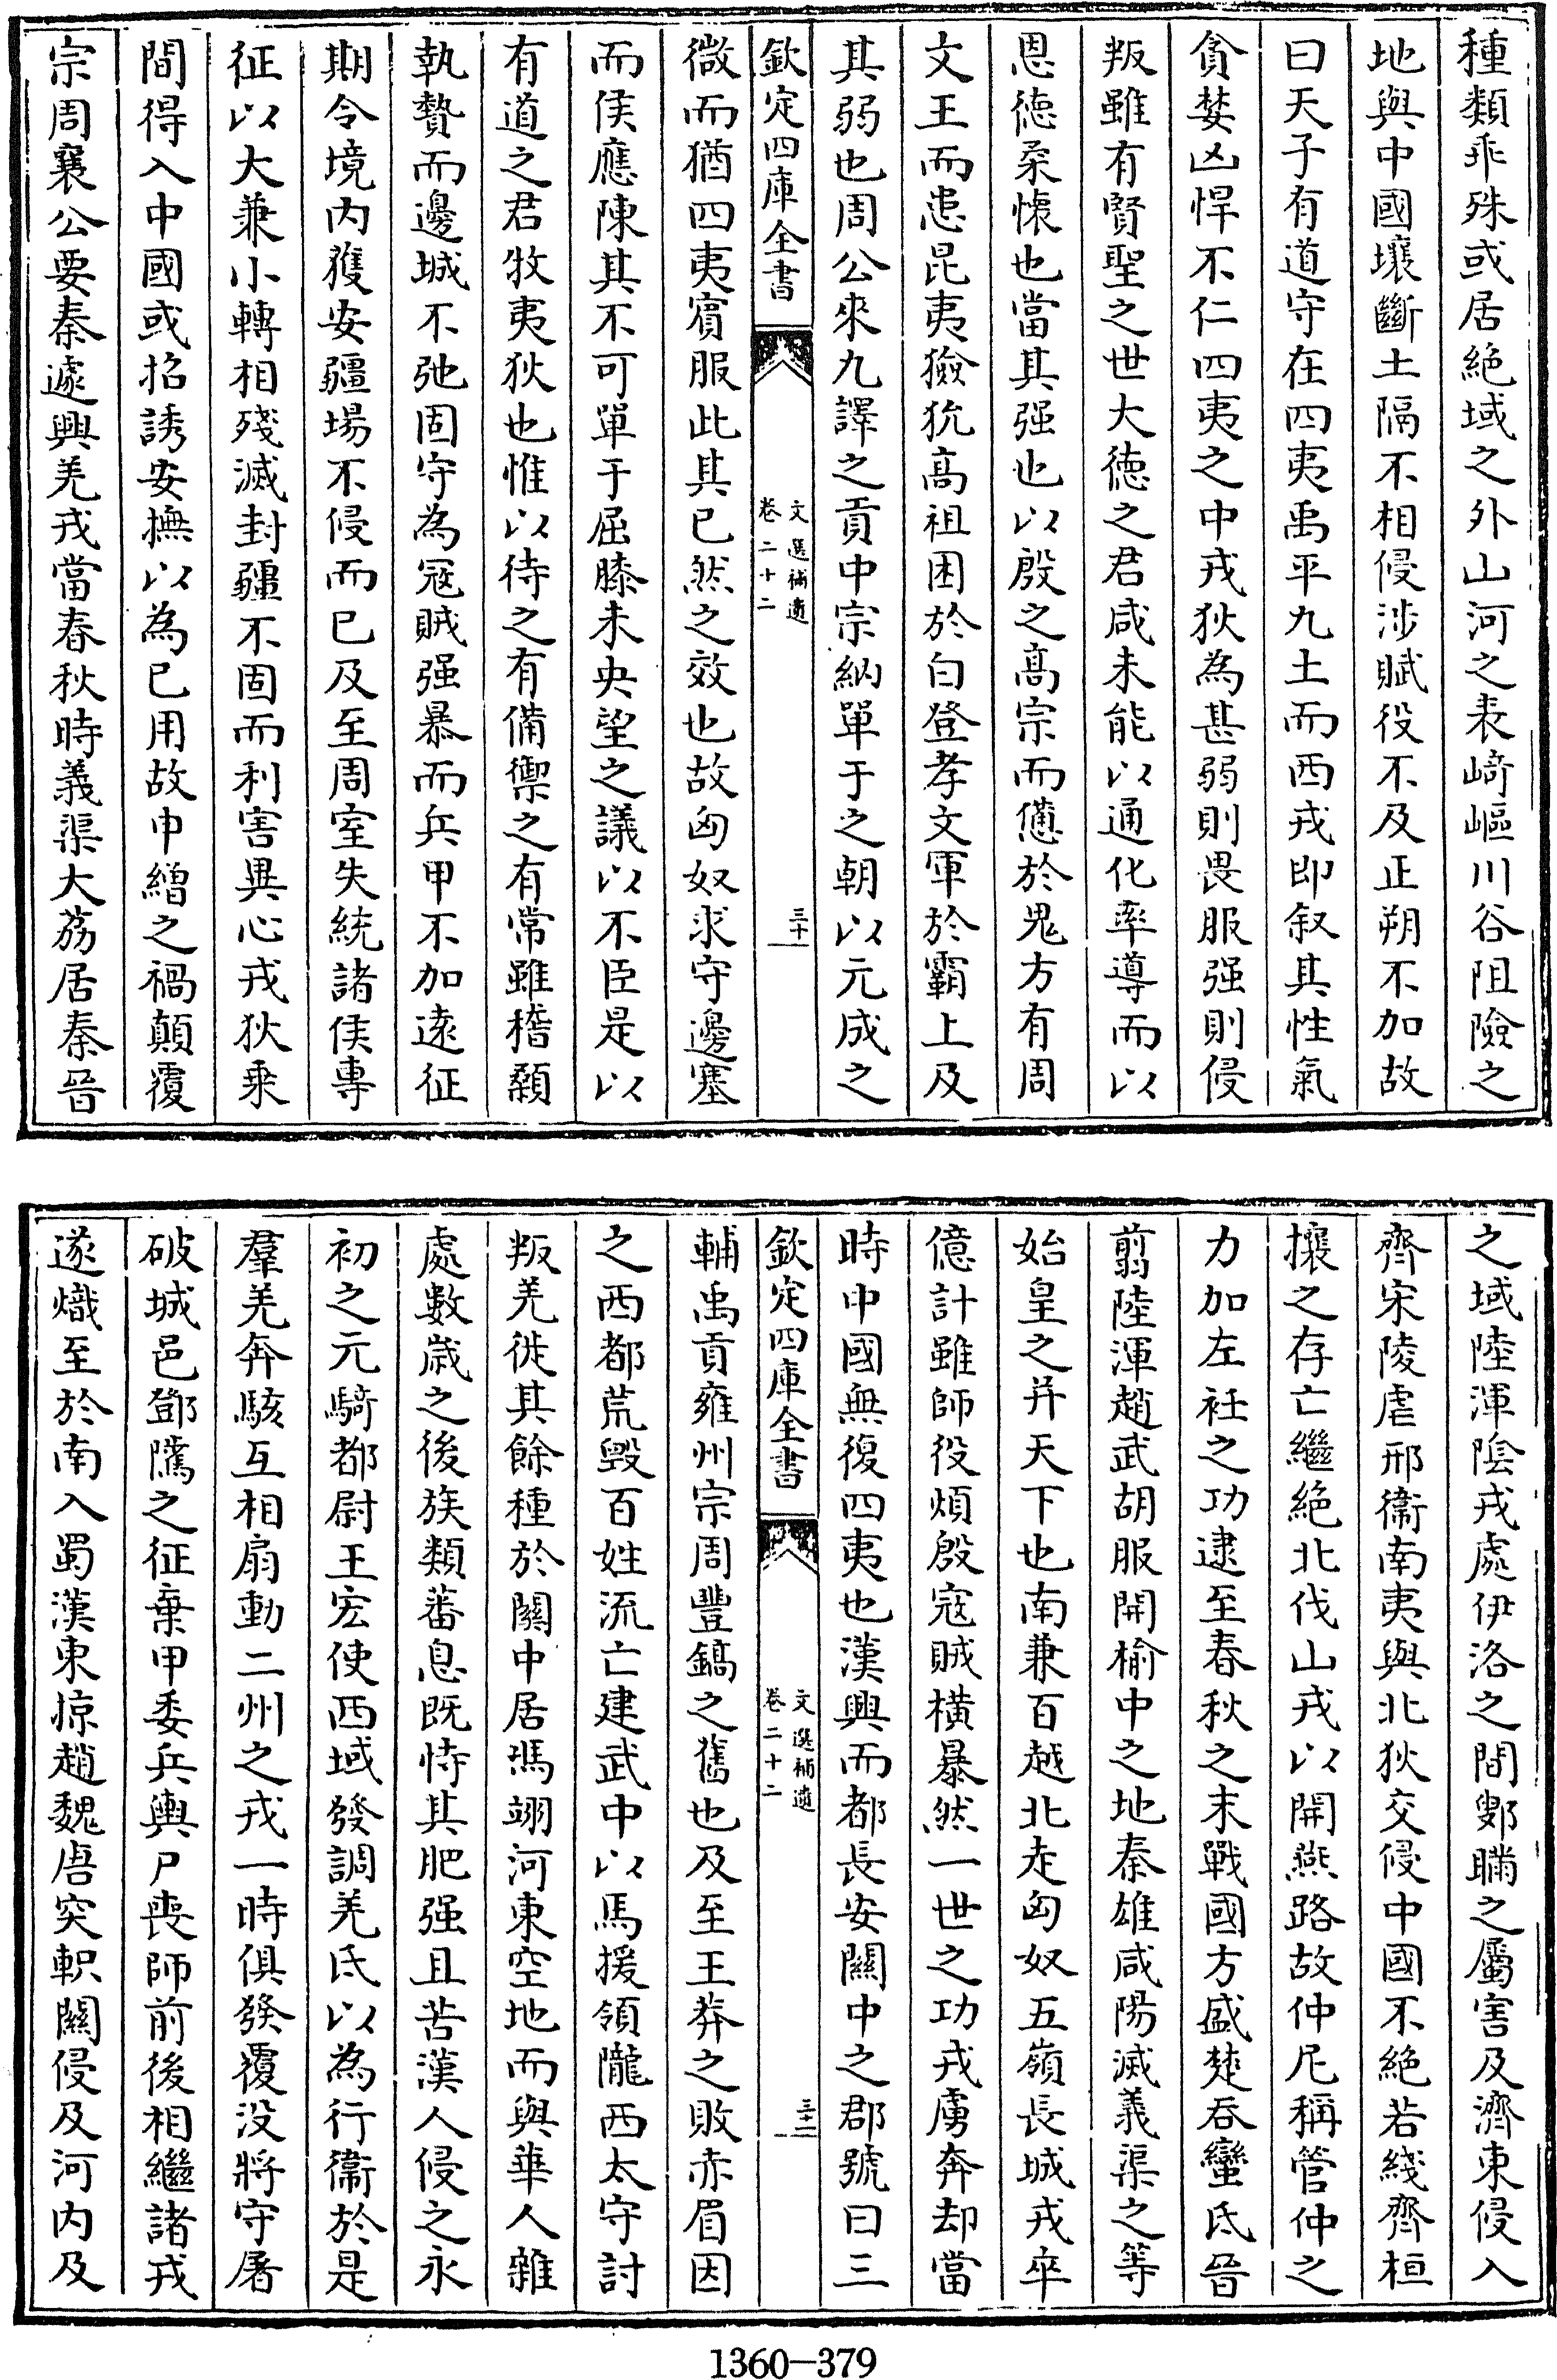 種類乖殊或居絶域之外山河之表崎嶇川谷阻險之
地與中國壤斷土隔不相侵涉賦役不及正朔不加故
曰天子有道守在四夷禹平九土而西戎即叙其性氣
貪婪凶悍不仁四夷之中戎狄為甚弱則畏服强則侵
叛雖有賢聖之世大徳之君咸未能以通化率導而以
恩徳柔懷也當其强也以殷之髙宗而憊於鬼方有周
文王而患昆夷獫狁髙祖困於白登孝文軍於霸上及
其弱也周公來九譯之貢中宗納單于之朝以元成之
欽定四庫全書
文選補遺
卷二十二
三十
微而猶四夷賓服此其已然之效也故匈奴求守邊塞
而侯應陳其不可單于屈膝未央望之議以不臣是以
有道之君牧夷狄也惟以待之有備禦之有常雖稽顙
執贄而邊城不弛固守為冦賊强暴而兵甲不加逺征
期令境内獲安疆場不侵而已及至周室失統諸侯專
征以大兼小轉相殘滅封疆不固而利害異心戎狄乘
間得入中國或招誘安撫以為已用故申繒之禍顛覆
宗周襄公要秦遽興羌戎當春秋時義渠大荔居秦晉
之域陸渾隂戎處伊洛之間鄋瞞之屬害及濟東侵入
齊宋陵虐邢衞南夷與北狄交侵中國不絶若綫齊桓
攘之存亡繼絶北伐山戎以開燕路故仲尼稱管仲之
力加左衽之功逮至春秋之末戰國方盛楚吞蠻氐晉
翦陸渾趙武胡服開榆中之地秦雄咸陽滅義渠之等
始皇之并天下也南兼百越北走匈奴五嶺長城戎卒
億計雖師役煩殷寇賊橫暴然一世之功戎虜奔却當
時中國無復四夷也漢興而都長安關中之郡號曰三
欽定四庫全書
文選補遺
卷二十二
三十一
輔禹貢雍州宗周豐鎬之舊也及至王莽之敗赤眉因
之西都荒毀百姓流亡建武中以馬援領隴西太守討
叛羌徙其餘種於關中居馮翊河東空地而與華人雜
處數歳之後族類蕃息既恃其肥强且苦漢人侵之永
初之元騎都尉王宏使西域發調羌氐以為行衞於是
羣羌奔駭互相扇動二州之戎一時俱發覆没將守屠
破城邑鄧隲之征棄甲委兵輿尸喪師前後相繼諸戎
遂熾至於南入蜀漢東掠趙魏唐突軹關侵及河内及
1360—379